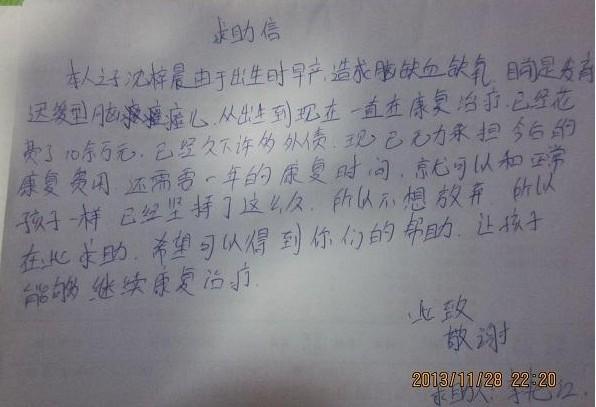 求助信
本人之子沈梓晨由于出生时早产,造成脑缺血缺氧.目前是发育
迟缓型脑瘫儿.从出生到现在一直在康复治疗.已经花
费了10余万元.已经欠下许多外债.现已无力承担今后的
康复费用.还需要一年的康复时间.就可以和正常
孩子一样 已经坚持了这么久.所以不想放弃 所以
在此求助.希望可以得到你们的帮助.让孩子
能够继续康复治疗.
此致
敬谢
2013/11/28 22:20
求助人.